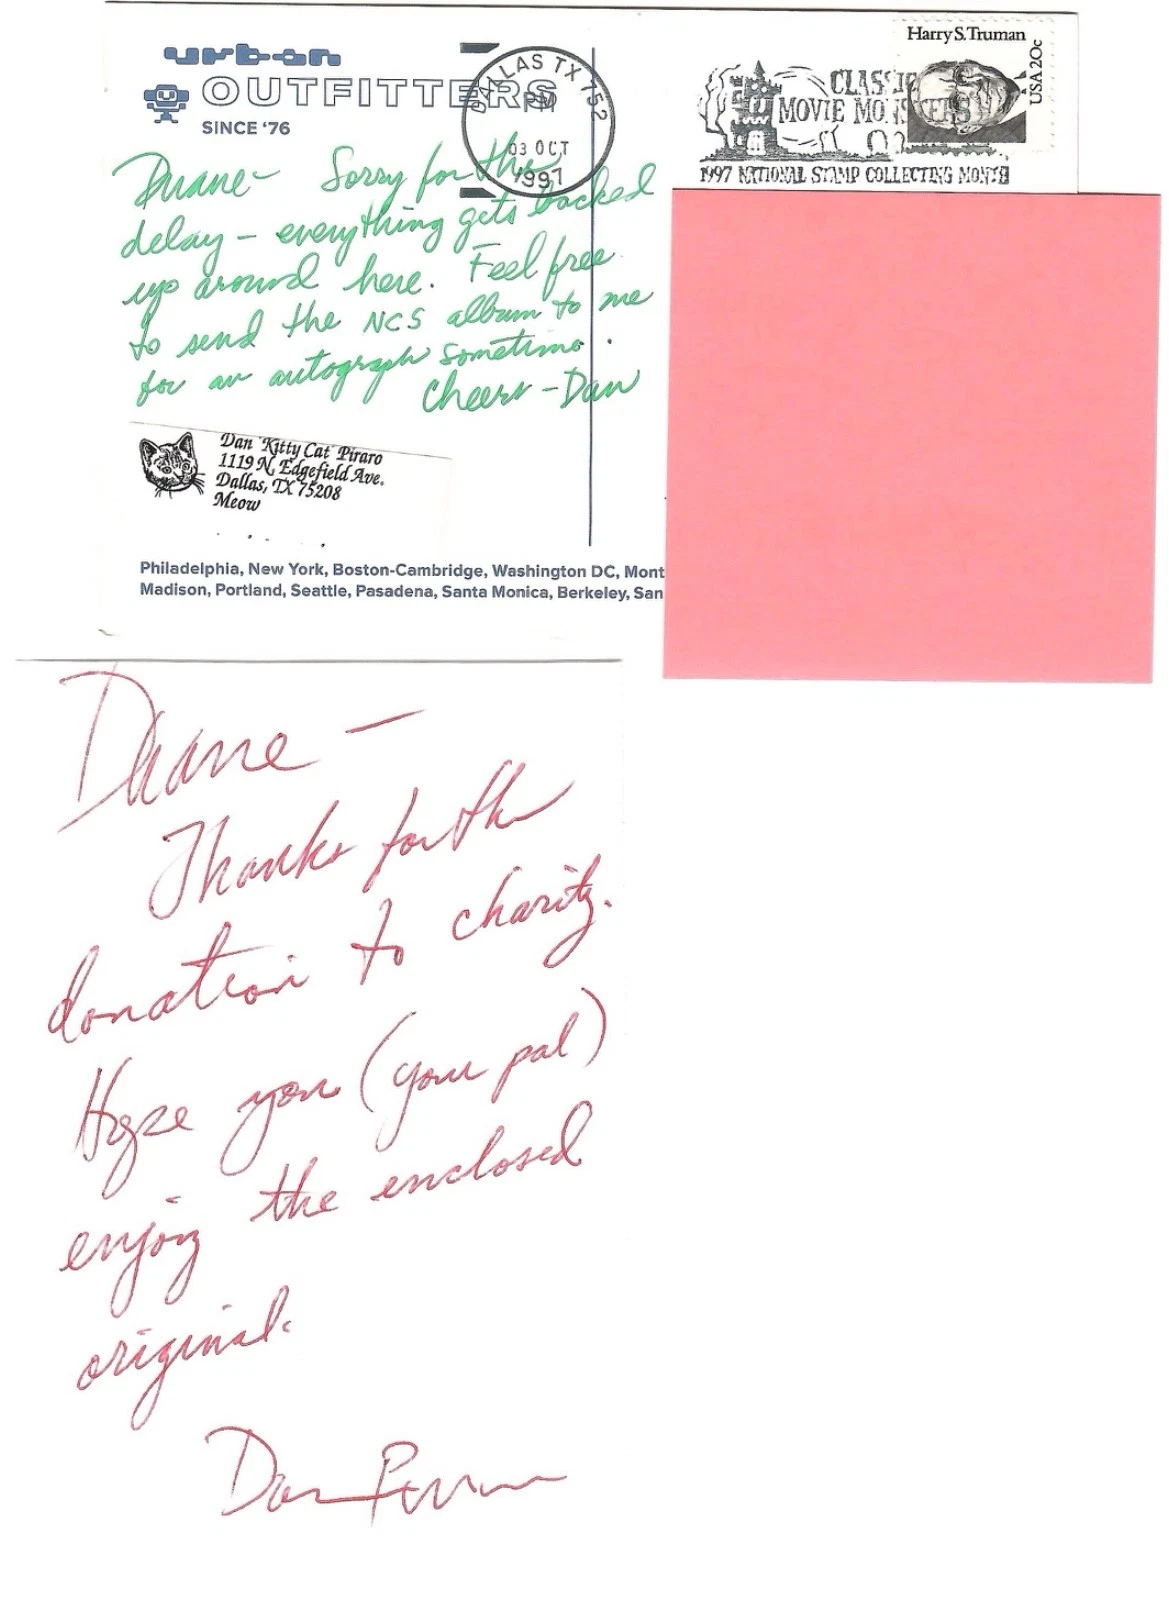 urban
OUTFITTERS
SINCE '76
DALLAS TX 752
PM
03 OCT
1997
CLASSIC
MOVIE MONSTERS
1997 NATIONAL STAMP COLLECTING MONTH
Harry S. Truman
USA 20c
Duane- Sorry for the
delay - everything gets backed
up around here. Feel free
to send the NCS album to me
for an autograph sometime.
Cheers - Dan
Dan "Kitty Cat" Piraro
1119 N. Edgefield Ave.
Dallas, TX 75208
Meow
Philadelphia, New York, Boston-Cambridge, Washington DC, Mont
Madison, Portland, Seattle, Pasadena, Santa Monica, Berkeley, San
Duane -
Thanks for the
donation to charity.
Hope you (your pal)
enjoy the enclosed
original.
Dan Piraro